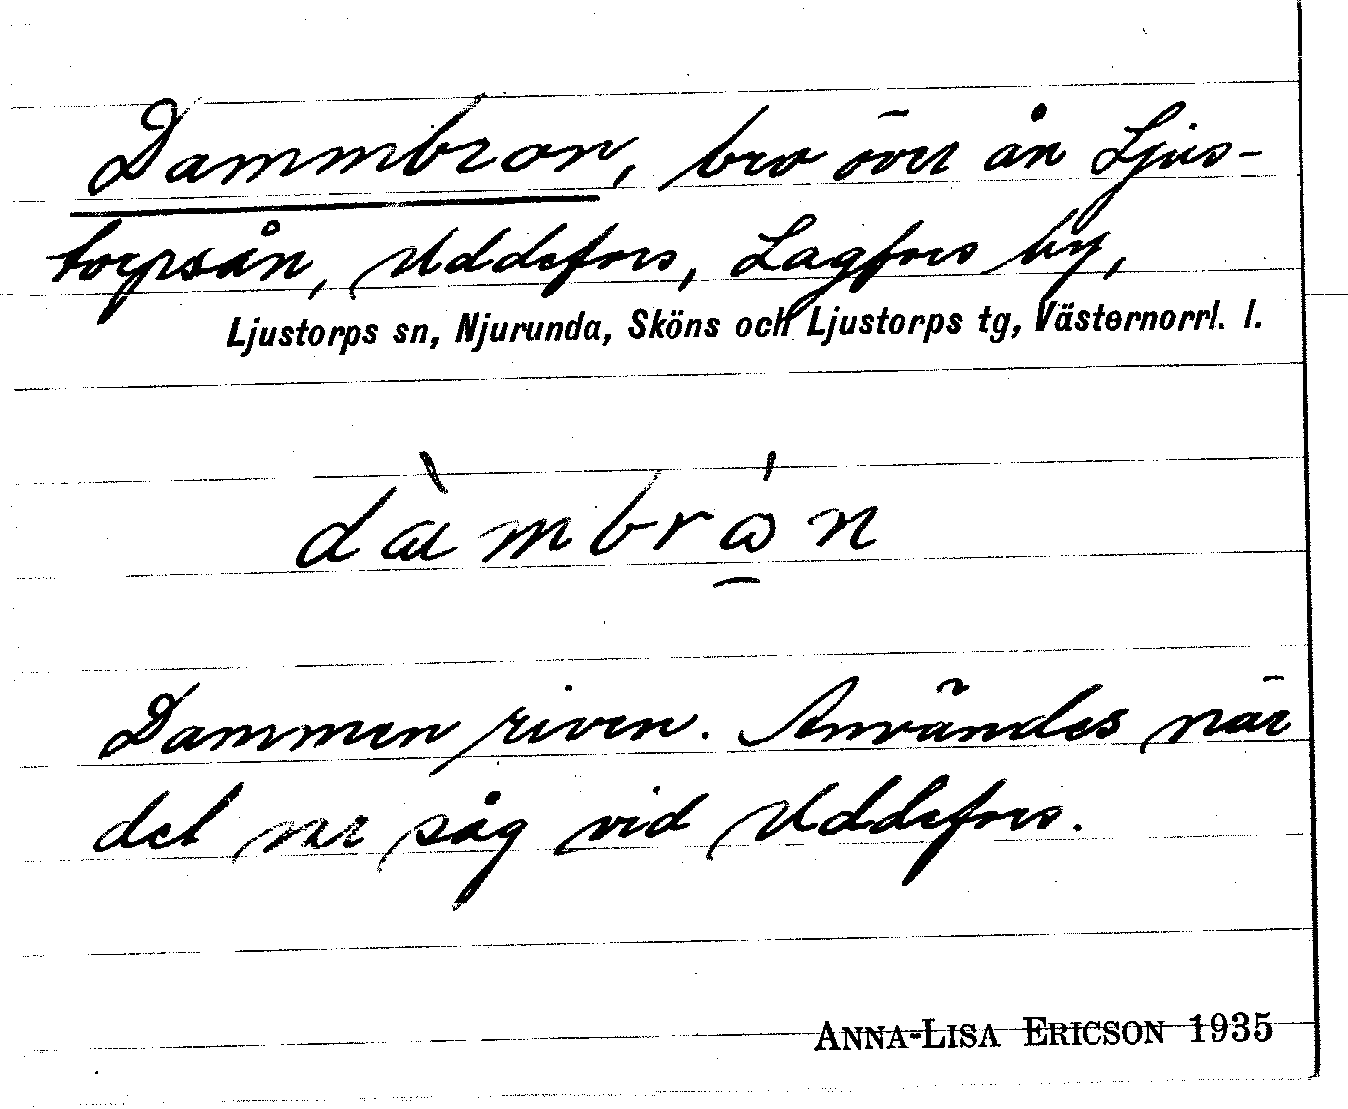 Dammbron, bro över ån Ljus-
torpsån, Uddefors, Lagfors by,
Ljustorps sn, Njurunda, Sköns och Ljustorps tg, Västernorrl. l.
dàmbrán
Dammen riven. Användes när
det var såg vid Uddefors.
ANNA-LISA ERICSON 1935